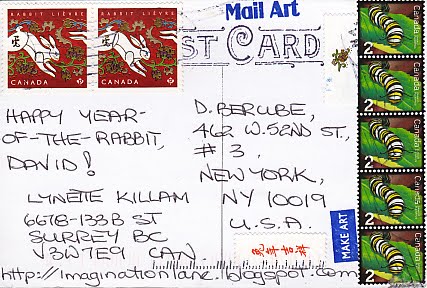 Mail Art
RABBIT LIÈVRE
RABBIT LIÈVRE
CANADA
P
CANADA
P
ST CARD
HAPPY YEAR-
OF-THE-RABBIT,
DAVID!
LYNETTE KILLAM
6678-133B ST
SURREY BC
V3W7E9 CAN.
http://imaginationlane.blogspot.com
D. BERUBE,
462 W. 52ND ST.,
# 3,
NEW YORK,
NY 10019
U.S.A.
MAKE ART
Canada
2
Canada
2
Canada
2
Canada
2
Canada
2